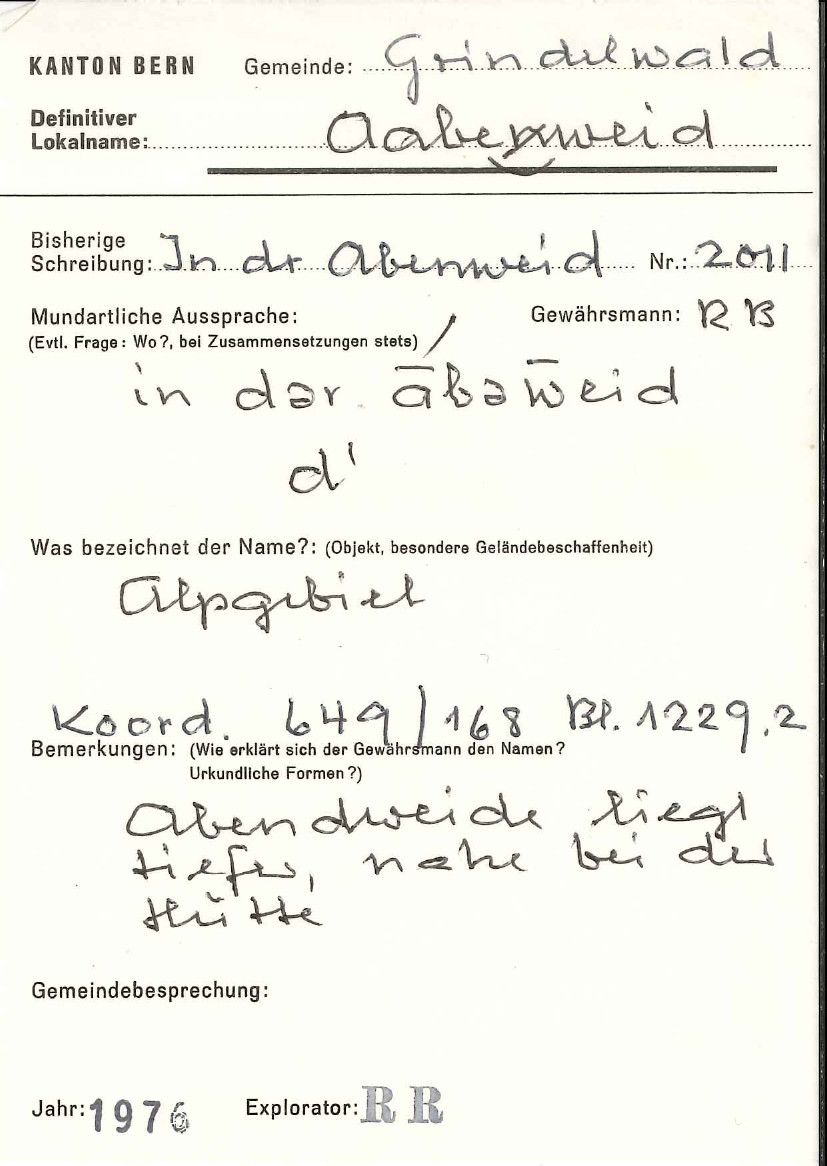 KANTON BERN Gemeinde: Grindelwald
Definitiver
Lokalname: Aabeweid
Bisherige
Schreibung: In dr Abenweid Nr.: 2011
Mundartliche Aussprache: Gewährsmann: R B
(Evtl. Frage: Wo?, bei Zusammensetzungen stets) /
in dər ābəw̅eid
d'
Was bezeichnet der Name?: (Objekt, besondere Geländebeschaffenheit)
Alpgebiet
Koord. 649/168 Bl. 1229.2
Bemerkungen: (Wie erklärt sich der Gewährsmann den Namen?
Urkundliche Formen?)
Abendweide liegt
tiefer, nahe bei der
Hütte
Gemeindebesprechung:
Jahr: 1976 Explorator: R R